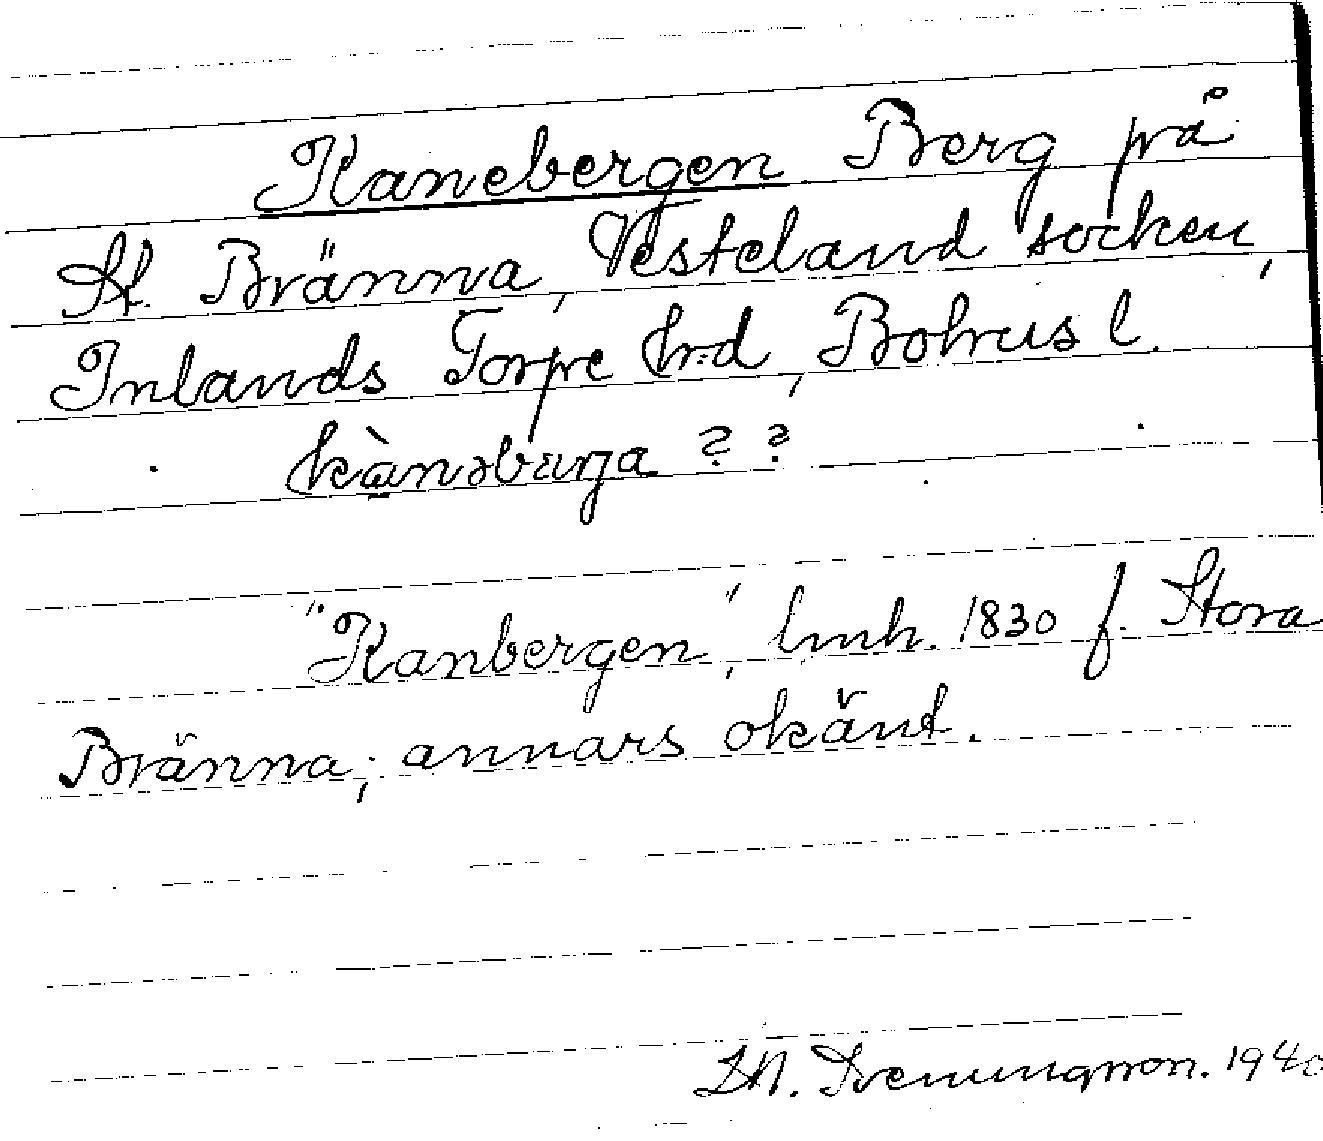 Kanebergen Berg på
St. Bränna, Vesteland socken,
Inlands Torpe hrd, Bohusl.
kànəbærja ? ?
"Kanbergen", lmh. 1830 f. Stora
Bränna; annars okänt.
1940